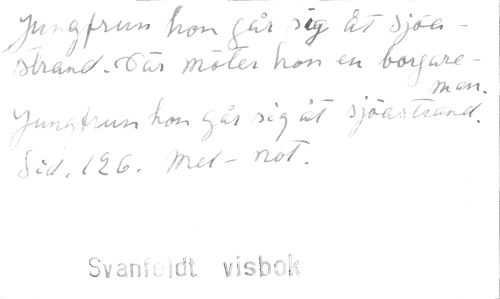 Jungfrun hon går sig åt sjöa-
strand. Där möter hon en borgare-
man.
Jungfrun hon går sig åt sjöastrand.
Sid. 126. Mel-not.
Svanfeldt visbok